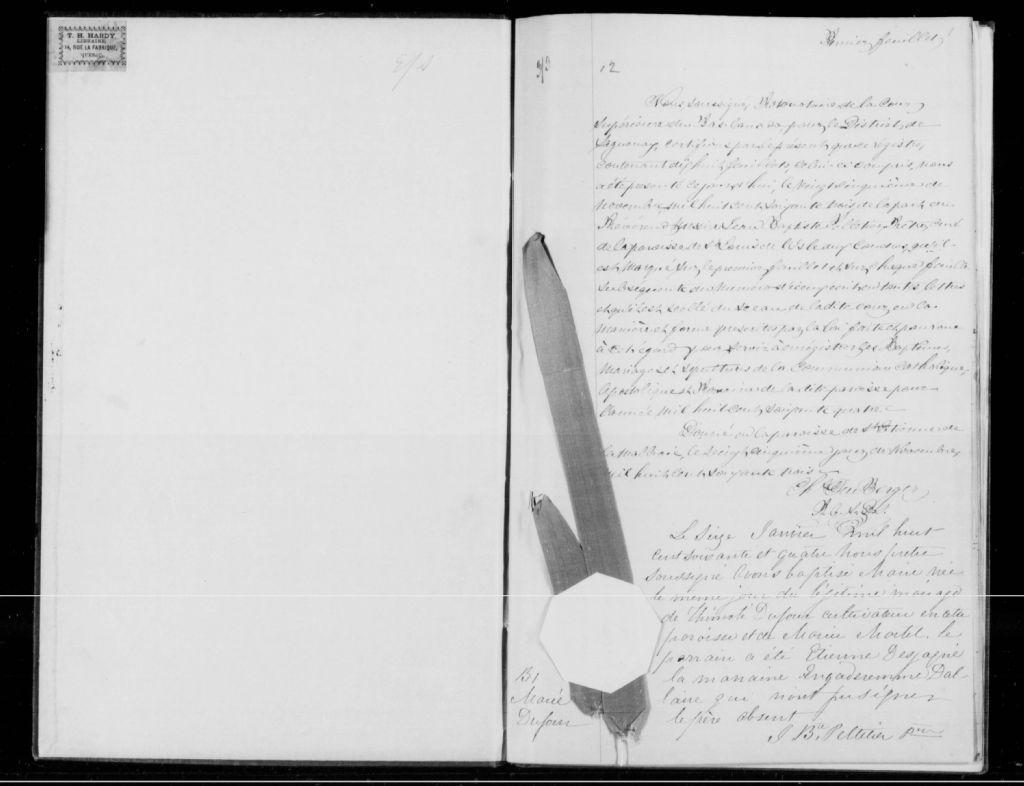 T. H. HARDY,
LIBRAIRE,
14, RUE LA FABRIQUE,
QUEBEC.
Premier feuillet
12
Nous soussigné, Protonotaire de la Cour
Supérieure du Bas Canada, pour le District de
Saguenay, certifions par le présent que ce régistre,
contenant dix huit feuillets, celui-ci compris, nous
a été présenté ce jourd'hui, le vingt cinquième de
Novembre, mil huit cent soixante trois de la part du
Révérend Messire Jean Baptiste Pelletier, Prêtre, Curé
de la paroisse de St Louis de l'Isle aux Coudres, qu'il
est marqué sur le premier feuillet et sur chaque feuillet
subséquent du numéro et écrit en toutes lettres
et qu'il est scellé du sceau de la dite cour, en la
manière et forme prescrites par la loi faite et pourvue
à cet égard pour servir à enrégistrer les Baptêmes,
Mariages et sépultures de la Communion Catholique,
Apostolique et Romaine de la dite paroisse pour
l'année mil huit cent soixante quatre.
Donné en la paroisse de St Etienne de
la Malbaie, le vingt cinquième jour de Novembre,
mil huit cent soixante trois
Chs Du Berger
P. C. S.
Le Seize Janvier mil huit
cent soixante et quatre Nous prêtre
soussigné avons baptisé Marie née
le même jour du légitime mariage
de Thimoté Dufour cultivateur en cette
paroisse et de Marie Martel. le
parrain a été Etienne Desgagné
la marraine Dal-
laire qui n'ont pu signer
le père absent
J Bte Pelletier Ptre
B1
Marie
Dufour